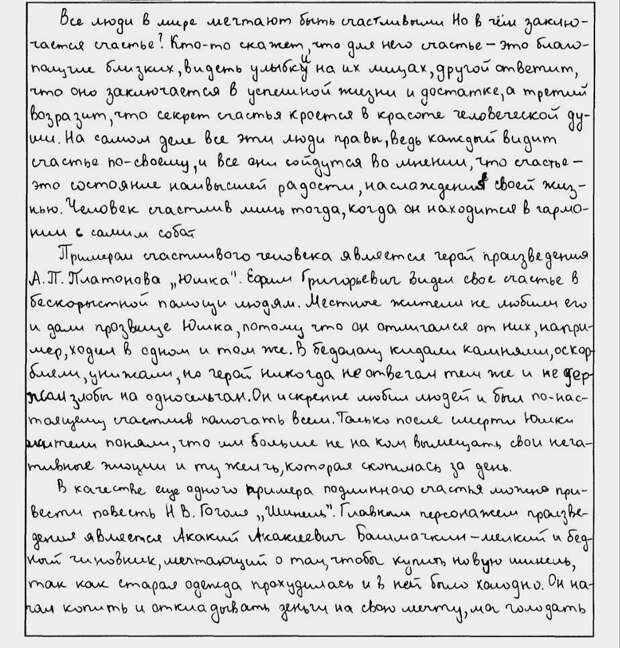 Все люди в мире мечтают быть счастливыми Но в чём заклю-
чается счастье? Кто-то скажет, что для него счастье – это благо-
получие близких, видеть улыбку на их лицах, другой ответит,
что оно заключается в успешной жизни и достатке, а третий
возразит, что секрет счастья кроется в красоте человеческой ду-
ши. На самом деле все эти люди правы, ведь каждый видит
счастье по-своему, и все они сойдутся во мнении, что счастье –
это состояние наивысшей радости, наслаждения своей жиз-
нью. Человек счастлив лишь тогда, когда он находится в гармо-
нии с самим собой
Примером счастливого человека является герой произведения
А. П. Платонова „Юшка". Ефим Григорьевич видел свое счастье в
бескорыстной помощи людям. Местные жители не любили его
и дали прозвище Юшка, потому что он отличался от них, напри-
мер, ходил в одном и том же. В бедолагу кидали камнями, оскор-
бляли, унижали, но герой никогда не отвечал тем же и не дер-
жал злобы на односельчан. Он искренне любил людей и был по-нас-
тоящему счастлив помогать всем. Только после смерти Юшки
жители поняли, что им больше не на ком вымещать свои нега-
тивные эмоции и ту желчь, которая скопилась за день.
В качестве еще одного примера подлинного счастья можно при-
вести повесть Н В. Гоголя „Шинель". Главным персонажем произве-
дения является Акакий Акакиевич Башмачкин – мелкий и бед-
ный чиновник, мечтающий о том, чтобы купить новую шинель,
так как старая одежда прохудилась и в ней было холодно. Он на-
чал копить и откладывать деньги на свою мечту, мог голодать